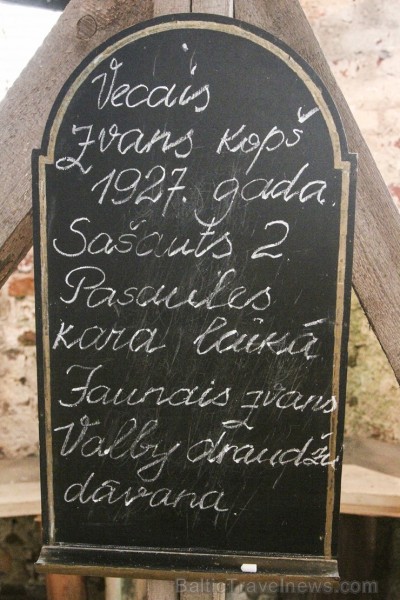 Vecais
zvans kopš
1927. gada.
Sašauts 2.
Pasaules
kara laikā
Jaunais zvans
Valby draudžu
dāvana.
BalticTravelNews.com